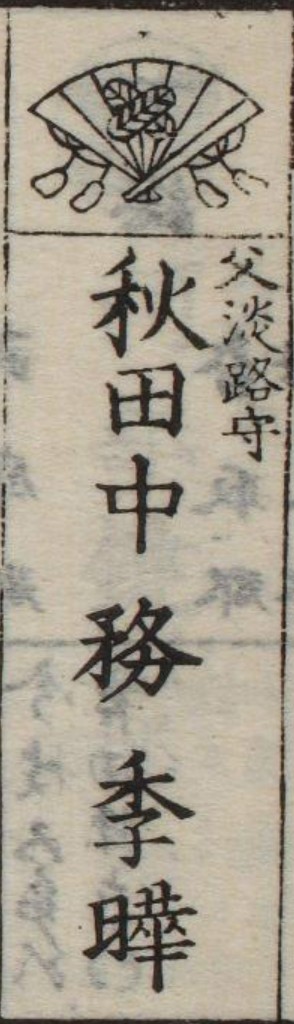 父淡路守
秋田中務季曄